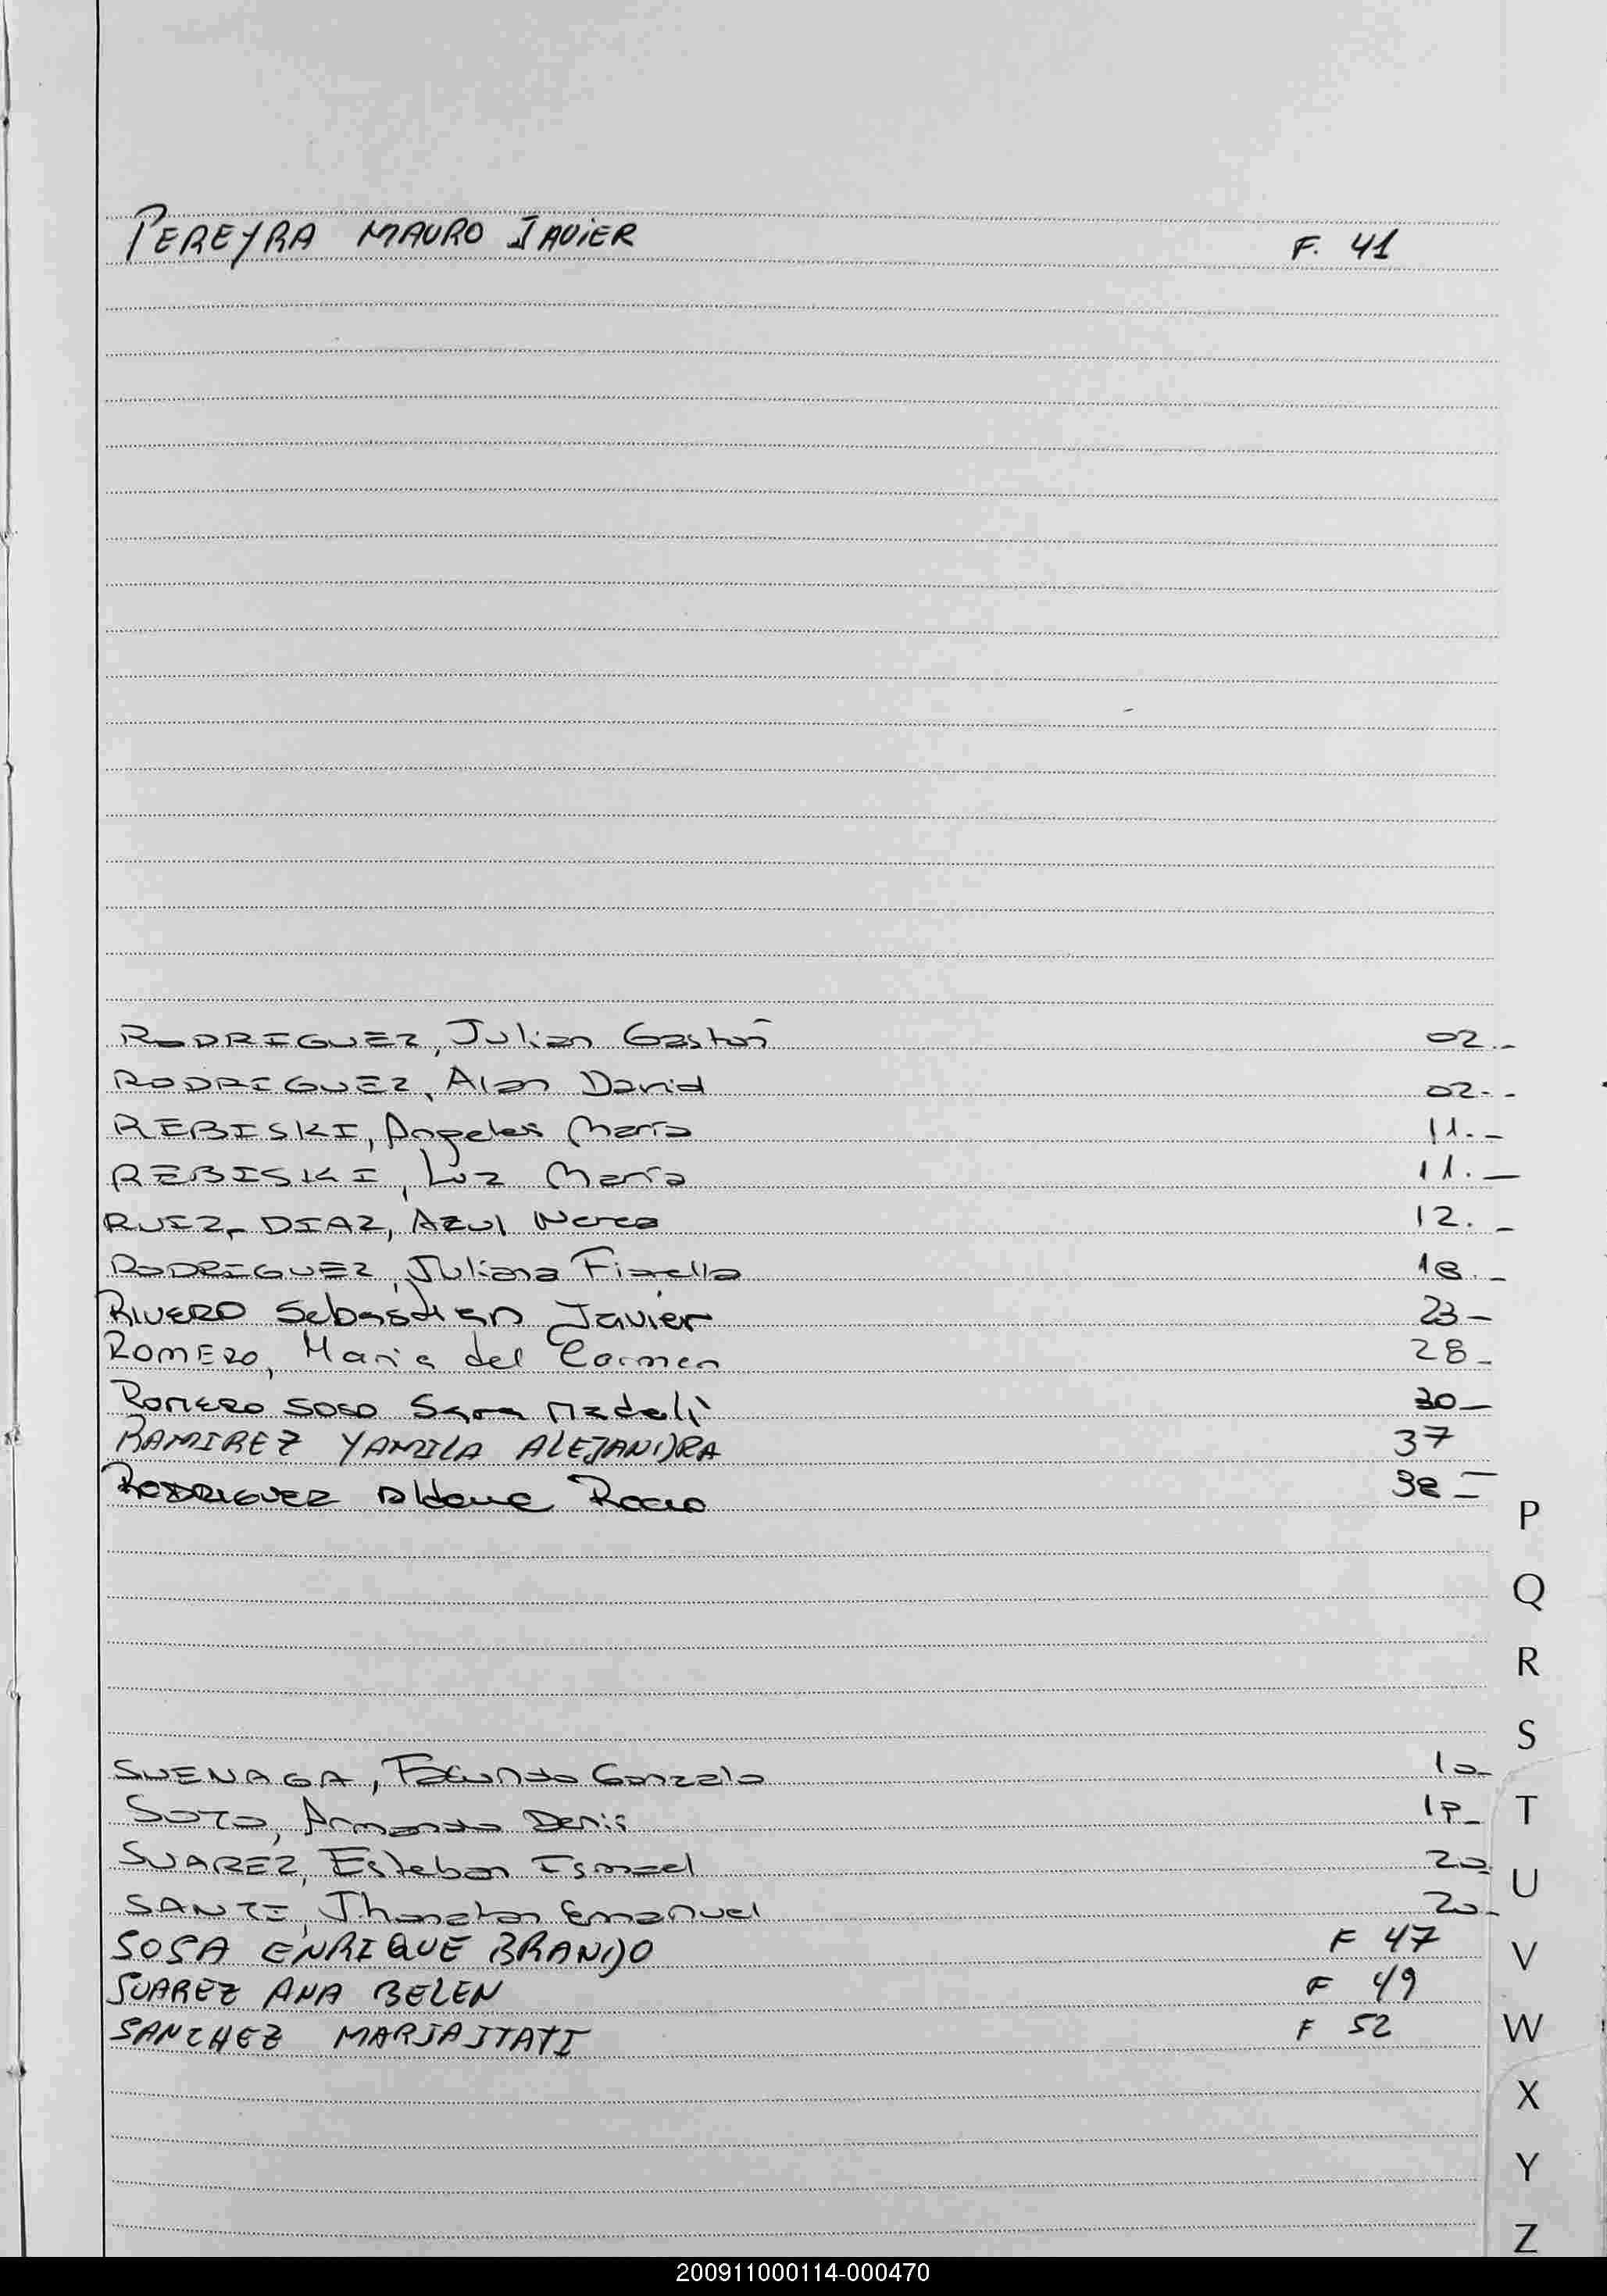 PEREYRA MAURO JAVIER F. 41
RODRIGUEZ, Julian Gastón 02.-
RODRIGUEZ, Alan David 02.-
REBISKI, Angeles María 11.-
REBISKI, Luz María 11.-
RUIZ, DIAZ, Azul Nerea 12.-
RODRIGUEZ, Juliana Fiorella 18.-
RIVERO Sebastian Javier 23-
ROMERO, Maria del Carmen 28-
ROMERO SOSO Sara Madeli 30-
RAMIREZ YAMILA ALEJANDRA 37
RODRIGUEZ Aldana Rocio 38-
SUENAGA, Facundo Gonzalo 10-
SOTO, Armando Denis
SUAREZ, Esteban Ismael 20-
SANTI, Jhonatan Emanuel 20-
SOSA ENRIQUE BRANDO F 47
SUAREZ ANA BELEN F 49
SANCHEZ MARIA ITATI F 52
P
Q
R
S
T
U
V
W
X
Y
Z
200911000114-000470